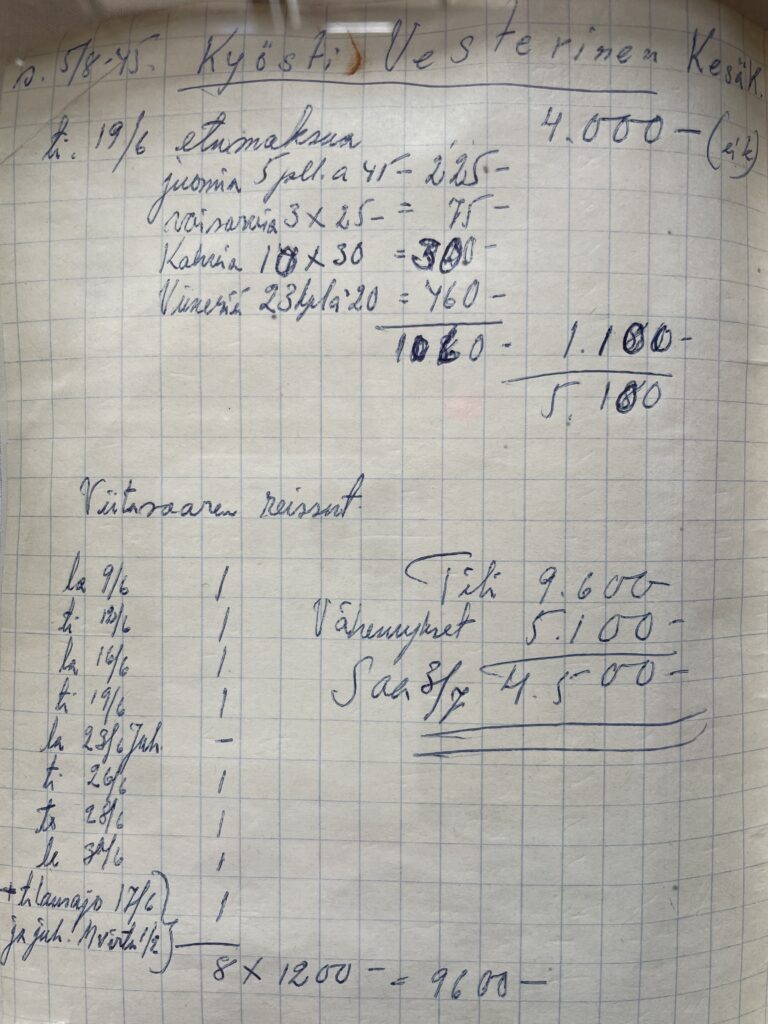 s. 5/8-45. Kyösti Vesterinen Kesäk.
ti. 19/6 etumaksua 4.000 - (eik)
juomia 5 pll. a 45 - 225 -
voisarvia 3 x 25 - = 75 -
Kahvia 10 x 30 = 300 -
Vineriä 23 kpl à 20 = 460 -
1060 - 1.100 -
5.100
Viitasaaren reissut.
la 9/6 1
ti 12/6 1
la 16/6 1
ti 19/6 1
la 23/6 juh. -
ti 26/6 1
to 28/6 1
la 30/6 1
+ tilausajo 17/6 } 1
ja juh. 1/2 }
8 x 1200 - = 9600 -
Tili 9.600 -
Vähennykset 5.100 -
Saa 3/7 4.500 -